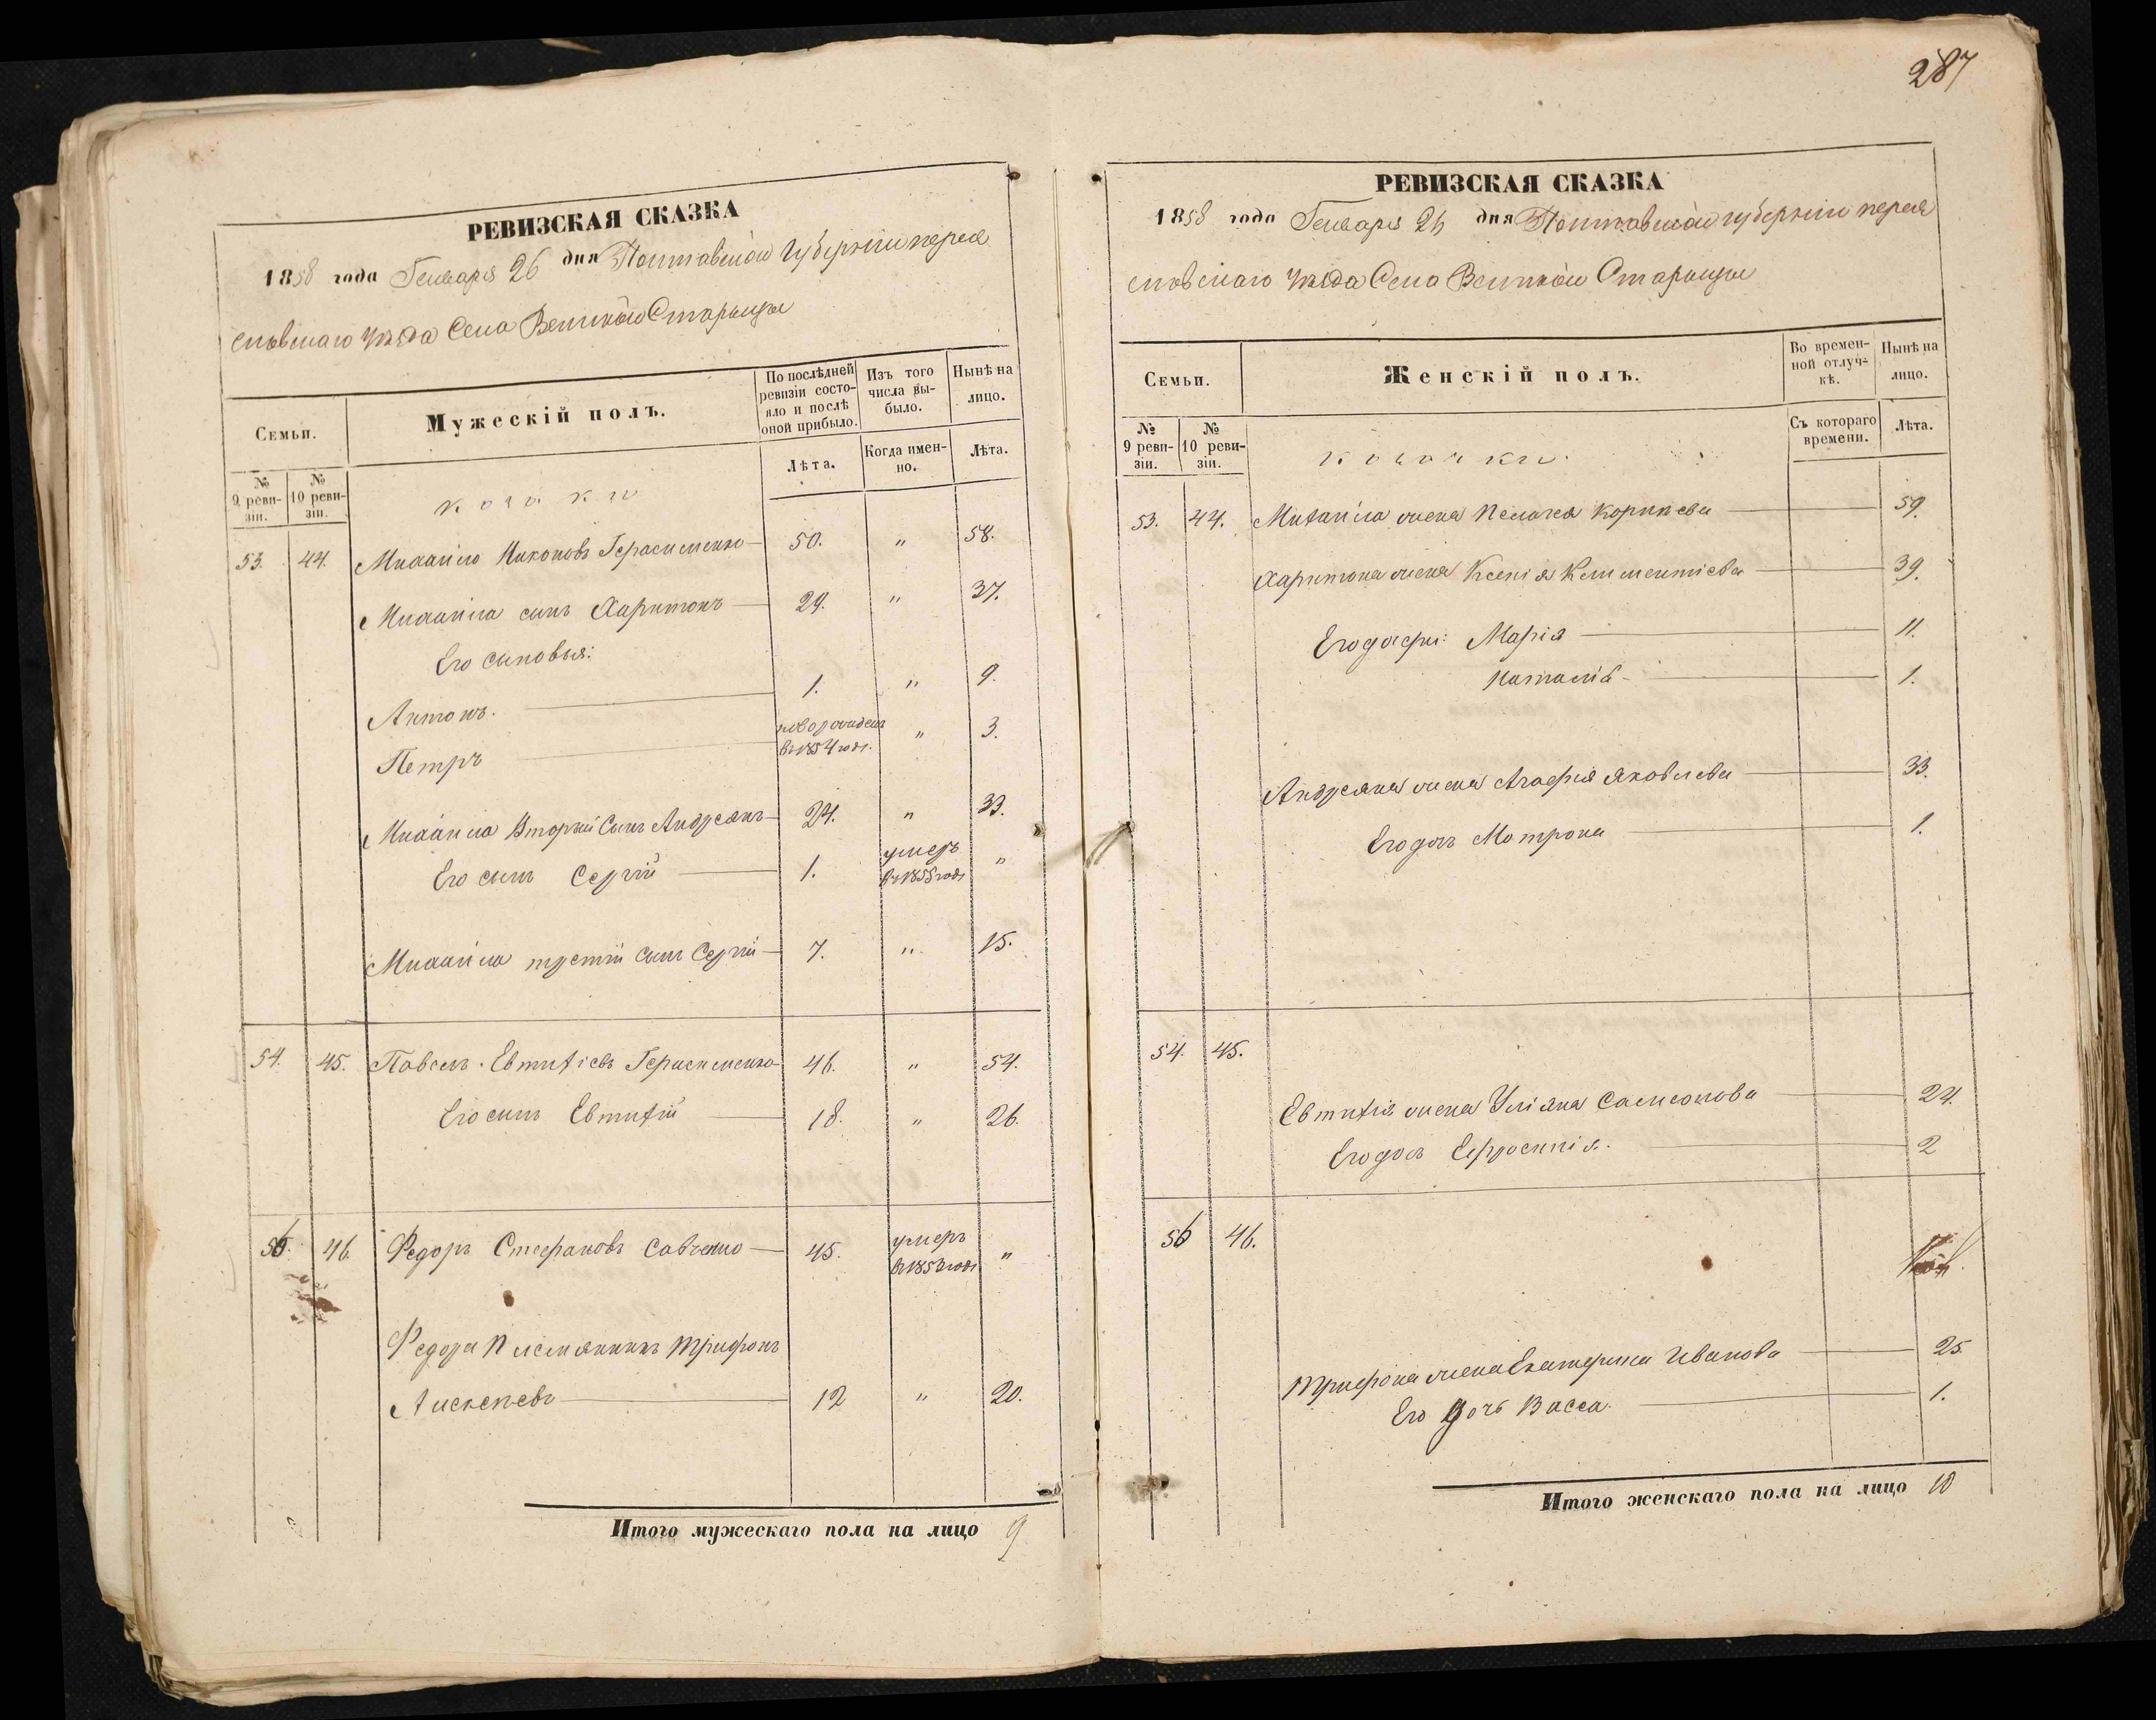 287
РЕВИЗСКАЯ СКАЗКА
1858 года Генваря 26 дня Полтавской Губерніи перея
словскаго уѣзда Села Великой Старицы
Семьи.
Мужескій полъ.
По послѣдней ревизіи состояло и послѣ оной прибыло.
Изъ того числа выбыло.
Нынѣ на лицо.
№ 9 ревизіи.
№ 10 ревизіи.
козаки
Лѣта.
Когда именно.
Лѣта.
53. 44. Михаило Никоновъ Герасименко 50. " 58.
Михаила сынъ Харитонъ 29. " 37.
Его сыновья:
Антонъ. 1. " 9.
Петръ новорожденъ въ 1854 годѣ. " 3.
Михаила Вторый Сынъ Андреянъ 24. " 33.
Его сынъ Сергій 1. умеръ въ 1855 годѣ "
Михаила третій Сынъ Сергій 7. " 15.
54. 45. Павелъ Евтихіевъ Герасименко 46. " 54.
Его сынъ Евтихій 18. " 26.
56. 46. Федоръ Стефановъ Савченко 45. умеръ въ 1853 годѣ "
Федора Племянникъ Трифонъ
Алексѣевъ 12 " 20.
Итого мужескаго пола на лицо 9
РЕВИЗСКАЯ СКАЗКА
1858 года Генваря 26 дня Полтавской губерніи перея
словскаго уѣзда Села Великой Старицы
Семьи.
Женскій полъ.
Во временной отлучкѣ.
Нынѣ на лицо.
№ 9 ревизіи.
№ 10 ревизіи.
козачки.
Съ котораго времени.
Лѣта.
53. 44. Михаила жена Пелагея Корнѣева 59.
Харитона жена Ксенія Климентіева 39.
Его дочери: Марія 11.
Наталія 1.
Андреяна жена Агафія Яковлева 33.
Его дочь Мотрона 1.
54. 45.
Евтихія жена Уліяна Самсонова 24.
Его дочь Ефросинія. 2
56 46.
Трифона жена Екатерина Иванова 25.
Его дочь Васса. 1.
Итого женскаго пола на лицо 10